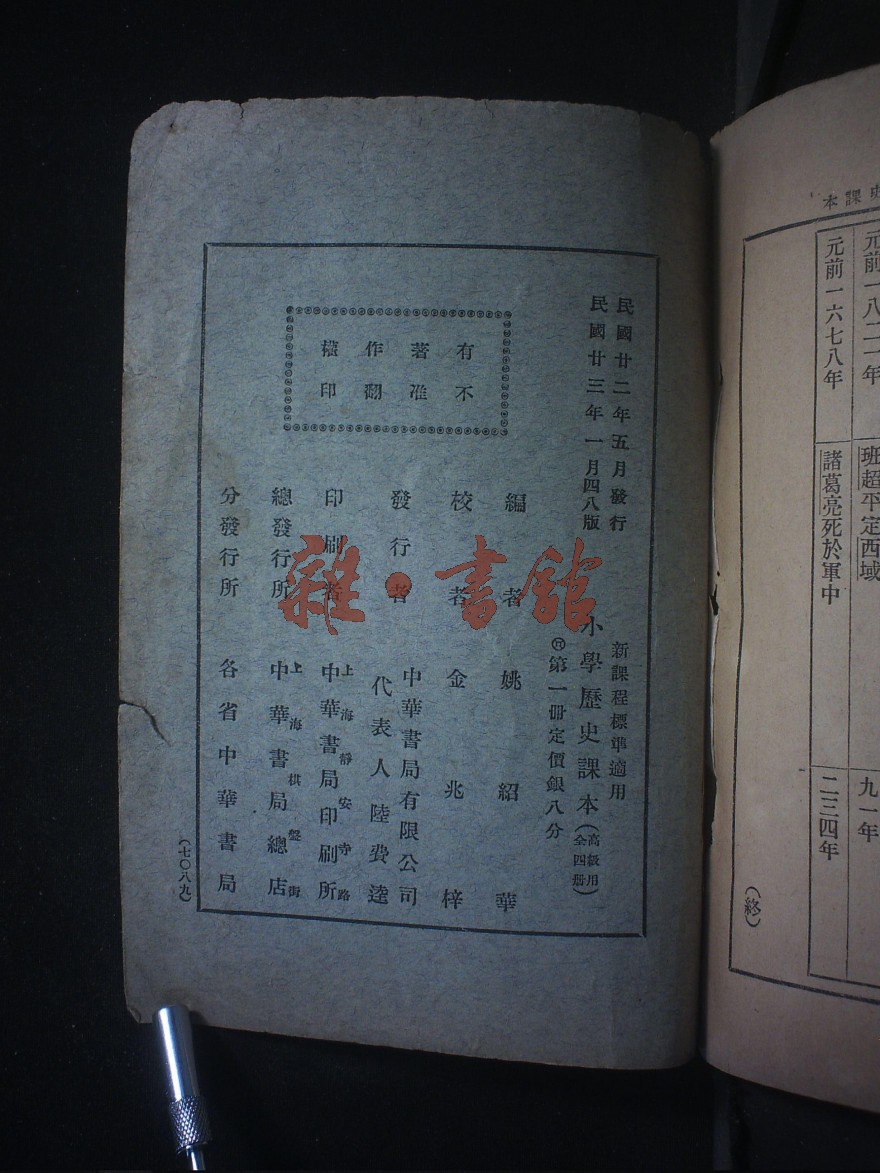 史課本
元前一八二一年
班超平定西域
九一年
元前一六七八年
諸葛亮死於軍中
二三四年
(終)
民國廿二年五月發行
民國廿三年一月四八版
新課程標準適用
小學歷史課本
(高級用
全四冊)
第一冊定價銀八分
有著作權
不准翻印
編者 姚紹華
校者 金兆梓
發行者 中華書局有限公司
代表人陸費逵
印刷者 上海靜安寺路
中華書局印刷所
總發行所 上海棋盤街
中華書局總店
分發行所 各省中華書局
(七〇八九)
雜·書館